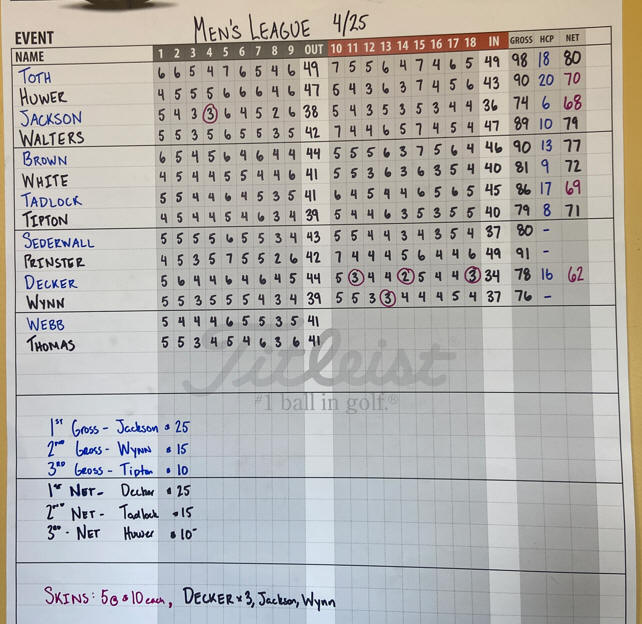 MEN'S LEAGUE 4/25
EVENT
NAME 1 2 3 4 5 6 7 8 9 OUT 10 11 12 13 14 15 16 17 18 IN GROSS HCP NET
TOTH 6 6 5 4 7 6 5 4 6 49 7 5 5 6 4 7 4 6 5 49 98 18 80
HUWER 4 5 5 5 6 6 6 4 6 47 5 4 3 6 3 7 4 5 6 43 90 20 70
JACKSON 5 4 3 3 6 4 5 2 6 38 5 4 3 5 3 5 3 4 4 36 74 6 68
WALTERS 5 5 3 5 6 5 5 3 5 42 7 4 4 6 5 7 4 5 4 47 89 10 79
BROWN 6 5 4 5 6 4 6 4 4 44 5 5 5 6 3 7 5 6 4 46 90 13 77
WHITE 4 5 4 4 5 5 4 4 6 41 5 5 3 6 3 6 3 5 4 40 81 9 72
TADLOCK 5 5 4 4 6 4 5 3 5 41 6 4 5 4 4 6 5 6 5 45 86 17 69
TIPTON 4 5 4 4 5 4 6 3 4 39 5 4 4 6 3 5 3 5 5 40 79 8 71
SEDERWALL 5 5 5 5 6 5 5 3 4 43 5 5 4 4 3 4 3 5 4 37 80 -
PRINSTER 4 5 3 5 7 5 5 2 6 42 7 4 4 4 5 6 4 4 6 49 91 -
DECKER 5 6 4 4 6 4 6 4 5 44 5 3 4 4 2 5 4 4 3 34 78 16 62
WYNN 5 5 3 5 5 5 4 3 4 39 5 5 3 3 4 4 4 5 4 37 76 -
WEBB 5 4 4 4 6 5 5 3 5 41
THOMAS 5 5 3 4 5 4 6 3 6 41
Titleist
#1 ball in golf.®
1ST GROSS - JACKSON $25
2ND GROSS - WYNN $15
3RD GROSS - Tipton $10
1ST NET - Decker $25
2ND NET - Tadlock $15
3RD - NET Huwer $10-
SKINS: 5 @ $10 each, DECKER x 3, Jackson, Wynn